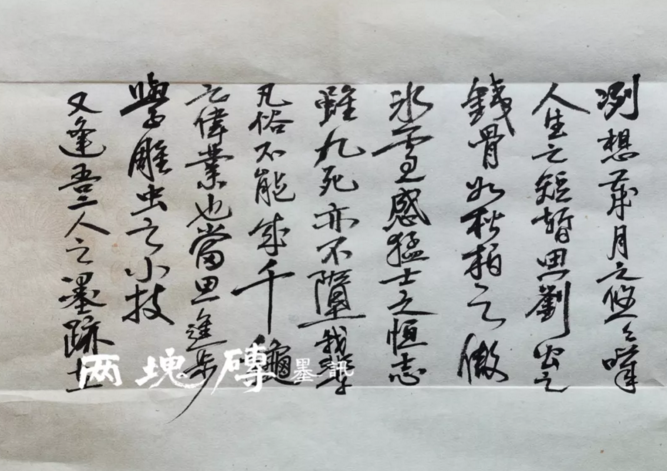 洌想歲月之悠々嘆
人生之短暫思劉公之
錢骨如松柏之傲
冰雪感猛士之恒志
雖九死亦不墮我輩
凡俗不能成千龜
之偉業也當思進步
學雕虫之小技
又逢吾二人之墨跡士
两塊磚墨訊